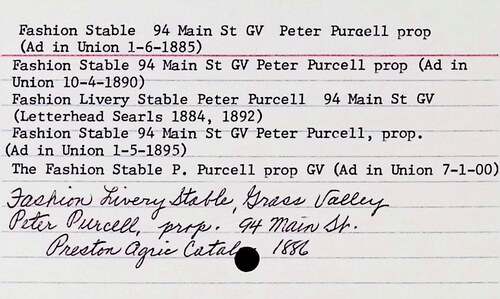 Fashion Stable 94 Main St GV Peter Purcell prop
(Ad in Union 1-6-1885)
Fashion Stable 94 Main St GV Peter Purcell prop (Ad in
Union 10-4-1890)
Fashion Livery Stable Peter Purcell 94 Main St GV
(Letterhead Searls 1884, 1892)
Fashion Stable 94 Main St GV Peter Purcell, prop.
(Ad in Union 1-5-1895)
The Fashion Stable P. Purcell prop GV (Ad in Union 7-1-00)
Fashion Livery Stable, Grass Valley
Peter Purcell, prop. 94 Main St.
Preston Agric 1886